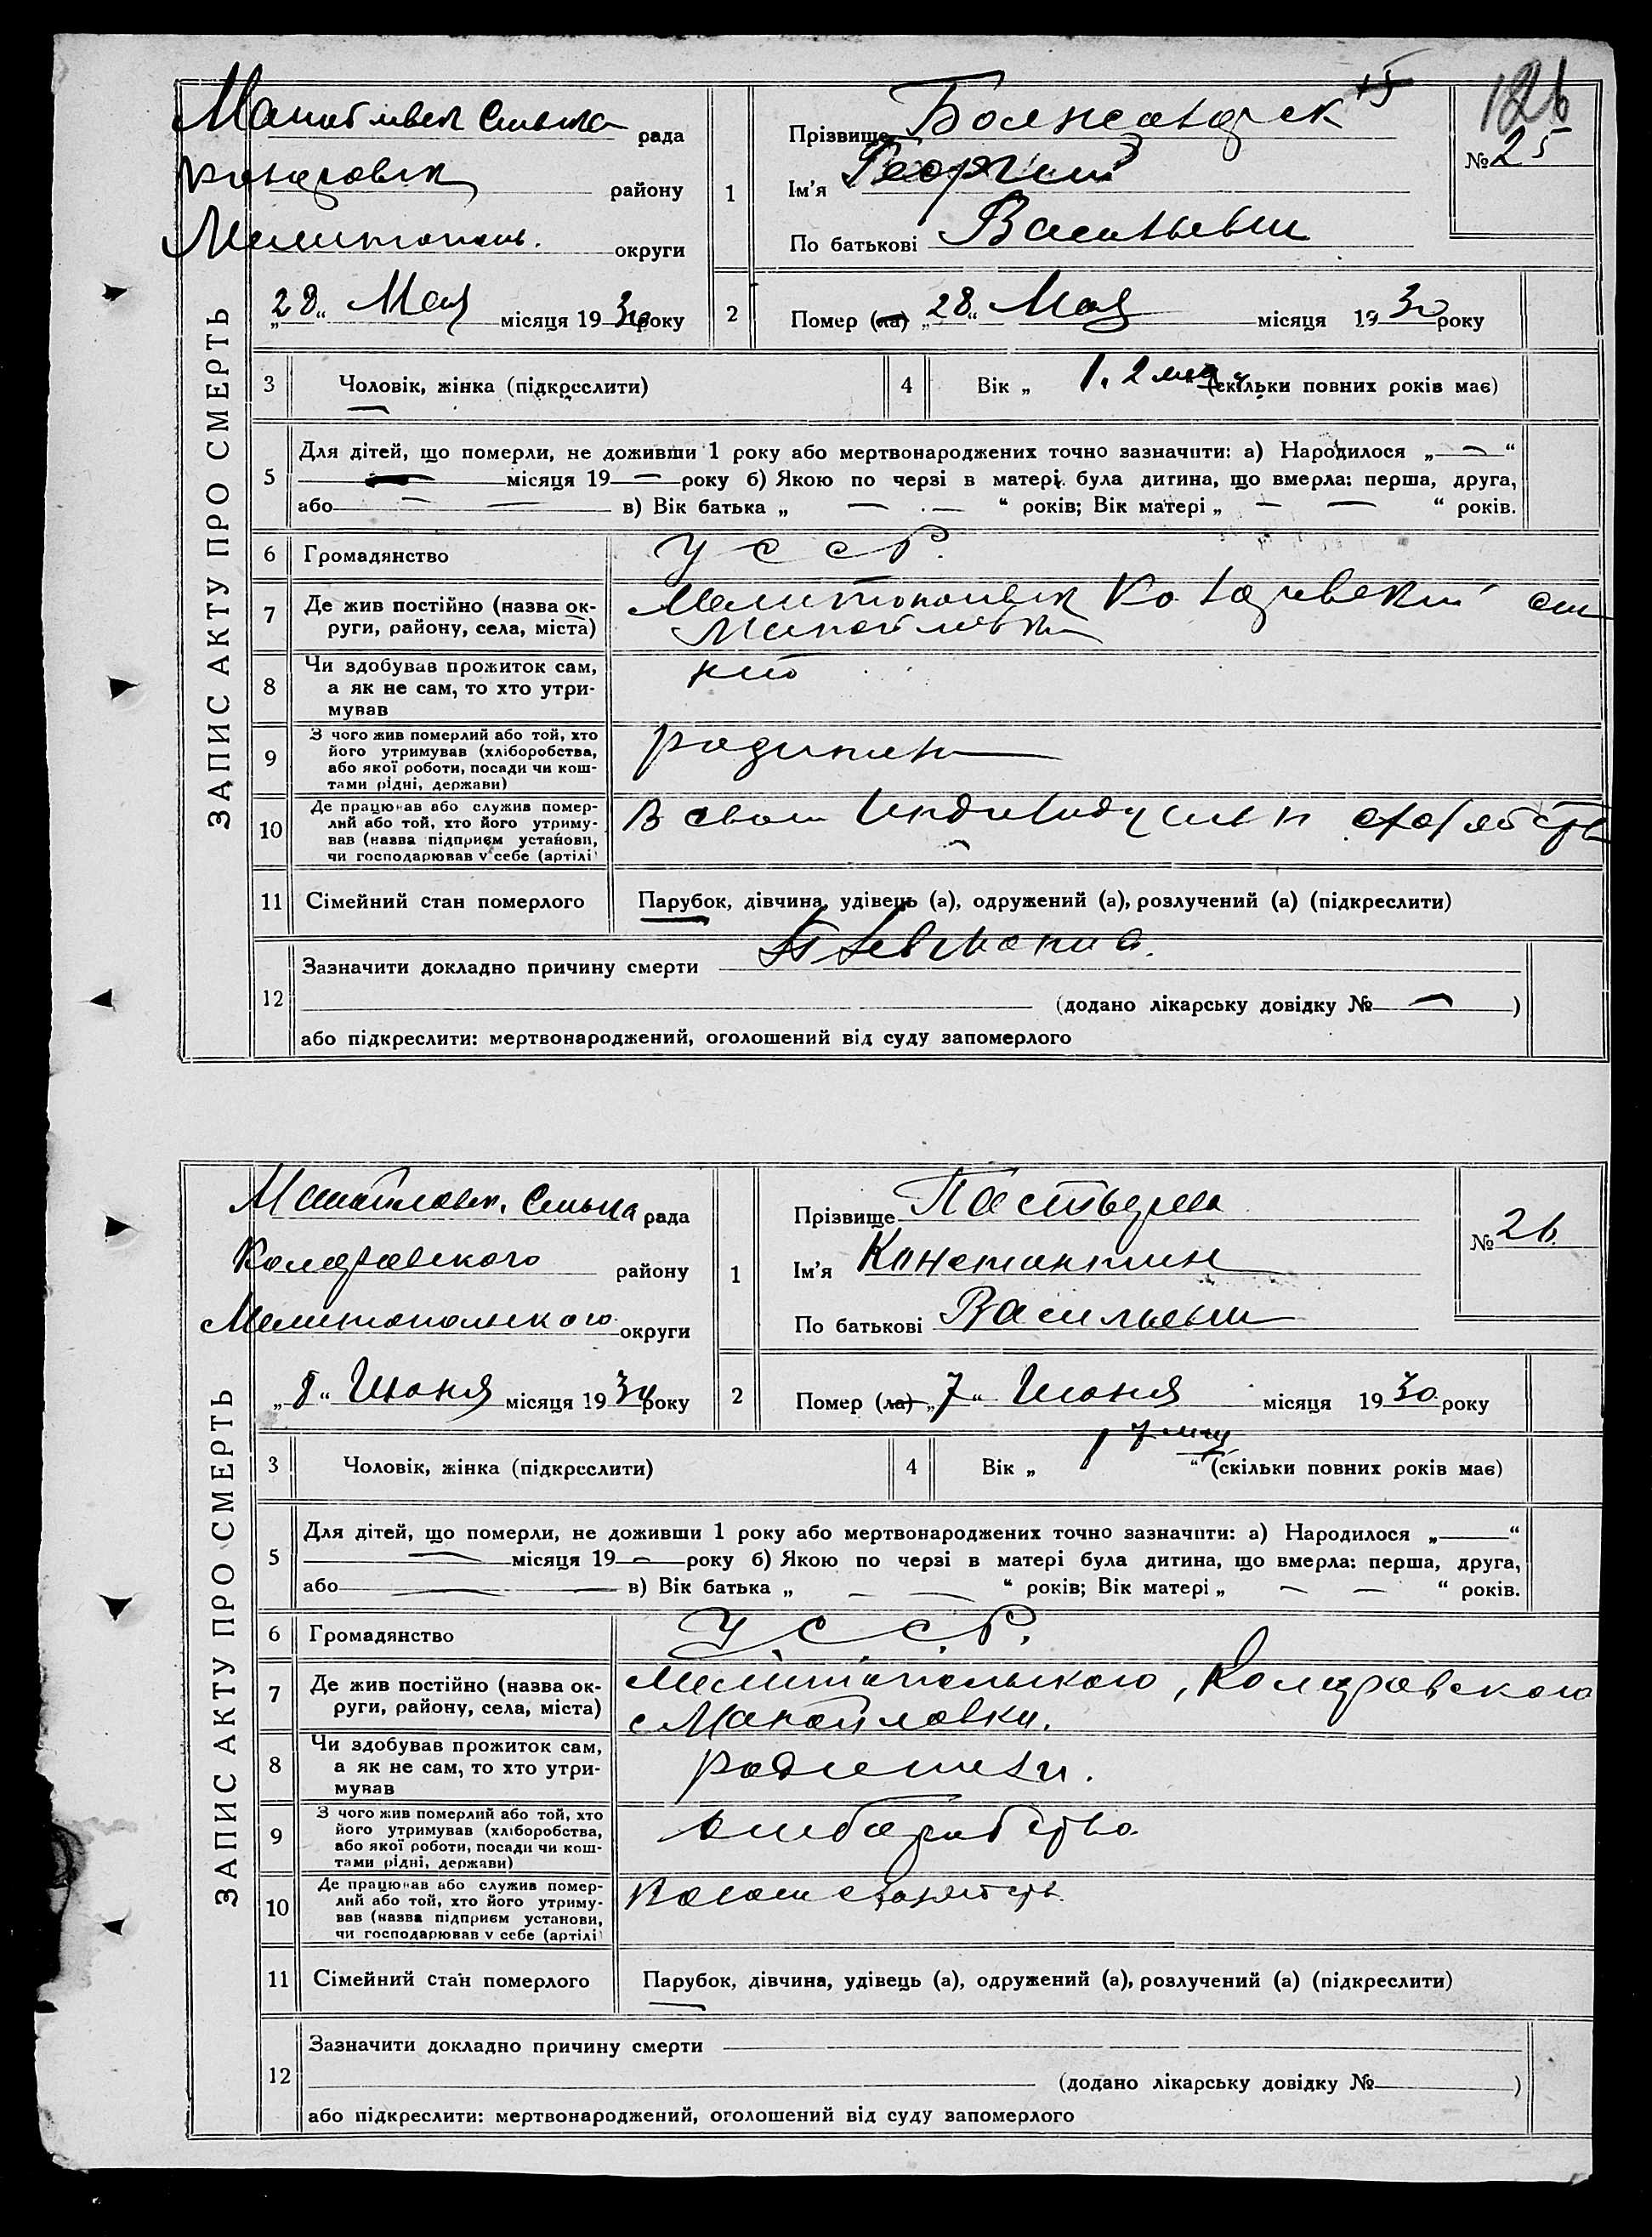 126
ЗАПИС АКТУ ПРО СМЕРТЬ
рада
району
Мелитополь. округи
„28“ Мая місяця 1930 року
1
Прізвище
Ім'я Георгий
По батькові Васильевич
№ 25
2
Помер (ла) „28“ Мая місяця 1930 року
3
Чоловік, жінка (підкреслити)
4
Вік „ 1. 2 мец “ (скільки повних років має)
5
Для дітей, що померли, не доживши 1 року або мертвонароджених точно зазначити: а) Народилося „ — “
— місяця 19 — року б) Якою по черзі в матері була дитина, що вмерла: перша, друга,
або — — в) Вік батька „ — — “ років; Вік матері „ — — “ років.
6
Громадянство
У С С Р.
7
Де жив постійно (назва ок-
руги, району, села, міста)
8
Чи здобував прожиток сам,
а як не сам, то хто утри-
мував
9
З чого жив померлий або той, хто
його утримував (хліборобства,
або якої роботи, посади чи кош-
тами рідні, держави)
10
Де працював або служив помер-
лий або той, хто його утриму-
вав (назва підприєм установи,
чи господарював у себе (артілі)
В своем
11
Сімейний стан померлого
Парубок, дівчина, удівець (а), одружений (а), розлучений (а) (підкреслити)
12
Зазначити докладно причину смерти
(додано лікарську довідку № — )
або підкреслити: мертвонароджений, оголошений від суду запомерлого
ЗАПИС АКТУ ПРО СМЕРТЬ
Манойловск. Сильна рада
району
Мелитопольского округи
„8“ Июня місяця 1930 року
1
Прізвище
Ім'я Константин
По батькові Васильевич
№ 26.
2
Помер (ла) „7“ Июня місяця 1930 року
3
Чоловік, жінка (підкреслити)
4
Вік „ 1 7 мец “ (скільки повних років має)
5
Для дітей, що померли, не доживши 1 року або мертвонароджених точно зазначити: а) Народилося „ “
— місяця 19 — року б) Якою по черзі в матері була дитина, що вмерла: перша, друга,
або — — в) Вік батька „ — — “ років; Вік матері „ — — “ років.
6
Громадянство
У. С. С. Р.
7
Де жив постійно (назва ок-
руги, району, села, міста)
Мелитопольского,
с Манойловки.
8
Чи здобував прожиток сам,
а як не сам, то хто утри-
мував
9
З чого жив померлий або той, хто
його утримував (хліборобства,
або якої роботи, посади чи кош-
тами рідні, держави)
10
Де працював або служив помер-
лий або той, хто його утриму-
вав (назва підприєм установи,
чи господарював у себе (артілі)
11
Сімейний стан померлого
Парубок, дівчина, удівець (а), одружений (а), розлучений (а) (підкреслити)
12
Зазначити докладно причину смерти
(додано лікарську довідку № )
або підкреслити: мертвонароджений, оголошений від суду запомерлого